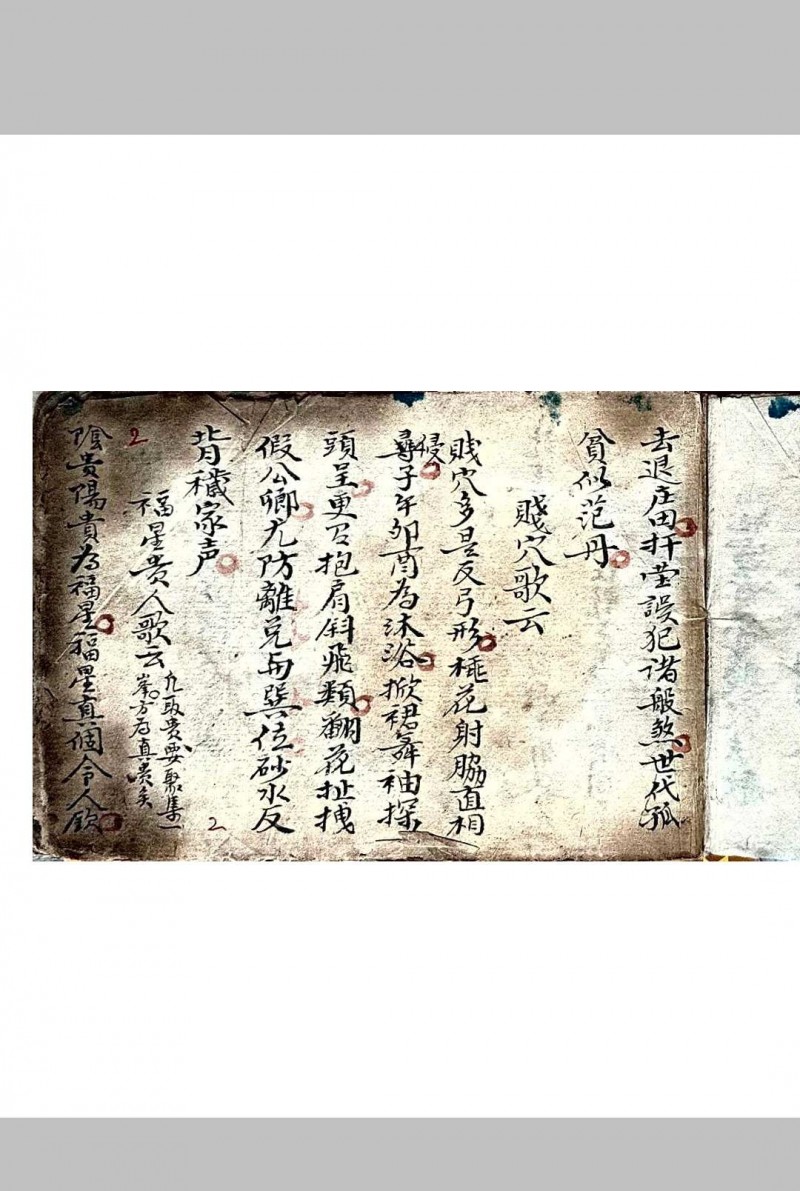 去退庄田扦塋誤犯诸般煞世代孤
貧似范丹
賤穴歌云
賎穴多是反弓形桃花射脇直相
侵
尋子午卯酉為沐浴掀裙舞袖探
頭呈更召抱肩斜飛類翻花扯拽
假公卿尤防離兌与巽位砂水反
背穢家声
福星贵人歌云
凢取贵要聚集一
峯方為真贵矣
2
2
陰貴陽貴为福星福星真個令人欽